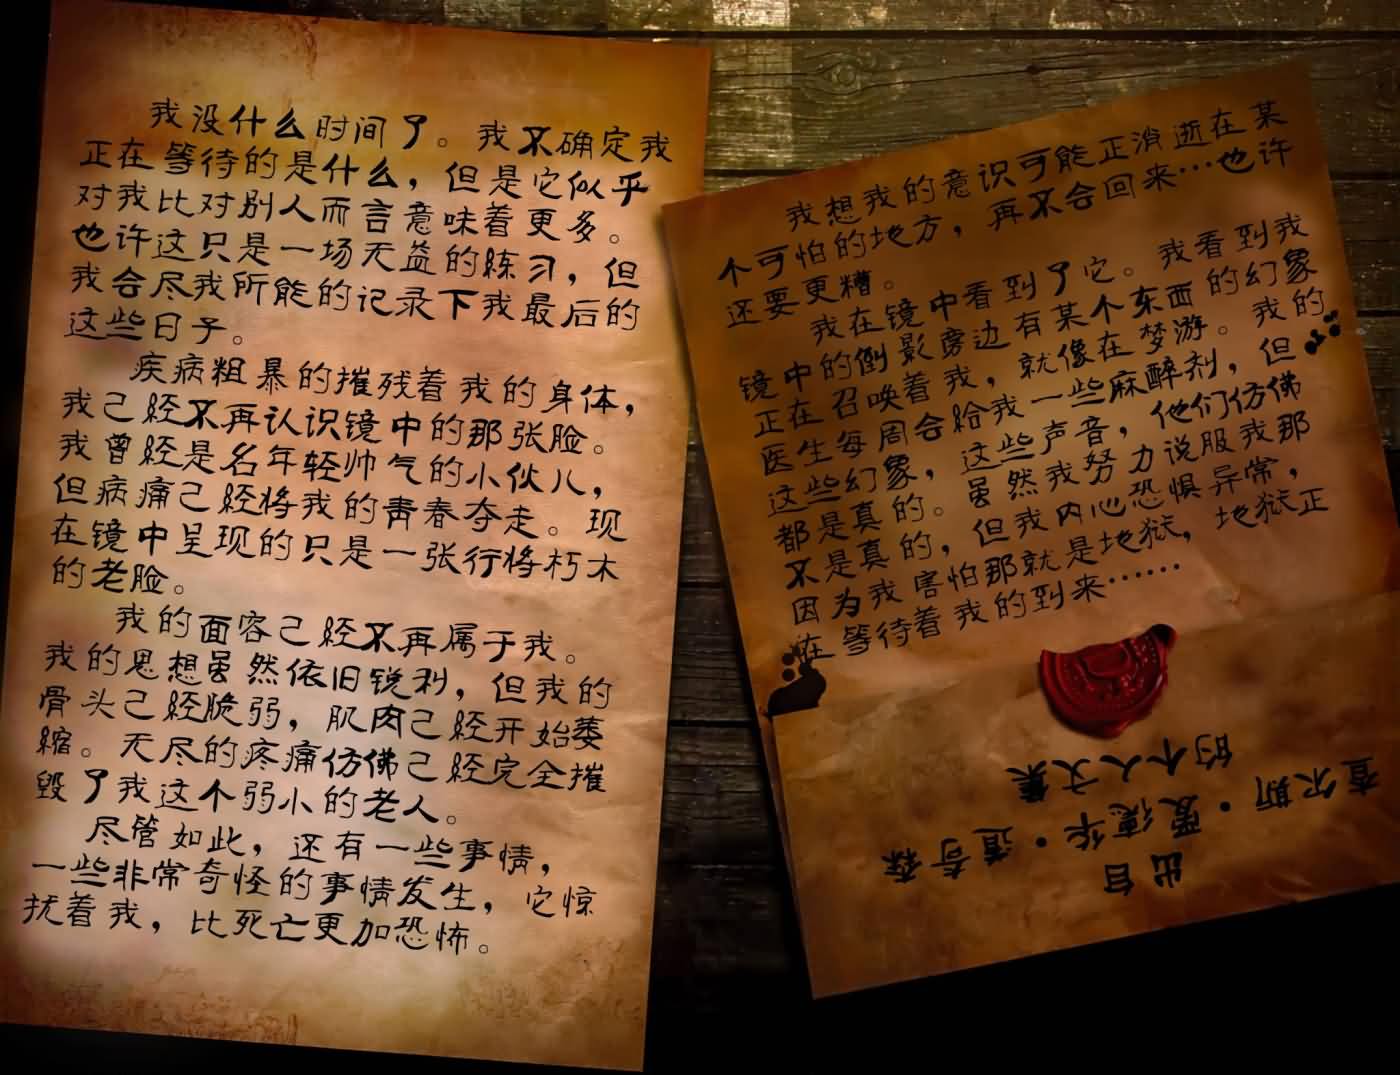 我没什么时间了。我不确定我
正在等待的是什么，但是它似乎
对我比对别人而言意味着更多。
也许这只是一场无益的练习，但
我会尽我所能的记录下我最后的
这些日子。
疾病粗暴的摧残着我的身体，
我己经不再认识镜中的那张脸。
我曾经是名年轻帅气的小伙儿，
但病痛己经将我的青春夺走。现
在镜中呈现的只是一张行将朽木
的老脸。
我的面容己经不再属于我。
我的思想虽然依旧锐利，但我的
骨头己经脆弱，肌肉己经开始萎
缩。无尽的疼痛仿佛己经完全摧
毁了我这个弱小的老人。
尽管如此，还有一些事情，
一些非常奇怪的事情发生，它惊
扰着我，比死亡更加恐怖。
我想我的意识可能正消逝在某
个可怕的地方，再不会回来…也许
还要更糟。
我在镜中看到了它。我看到我
镜中的倒影旁边有某个东西的幻象
正在召唤着我，就像在梦游。我的
医生每周会给我一些麻醉剂，但
这些幻象，这些声音，他们仿佛
都是真的。虽然我努力说服我那
不是真的，但我内心恐惧异常，
因为我害怕那就是地狱，地狱正
在等待着我的到来……
出自
查尔斯·爱德华·道奇森
的个人文集